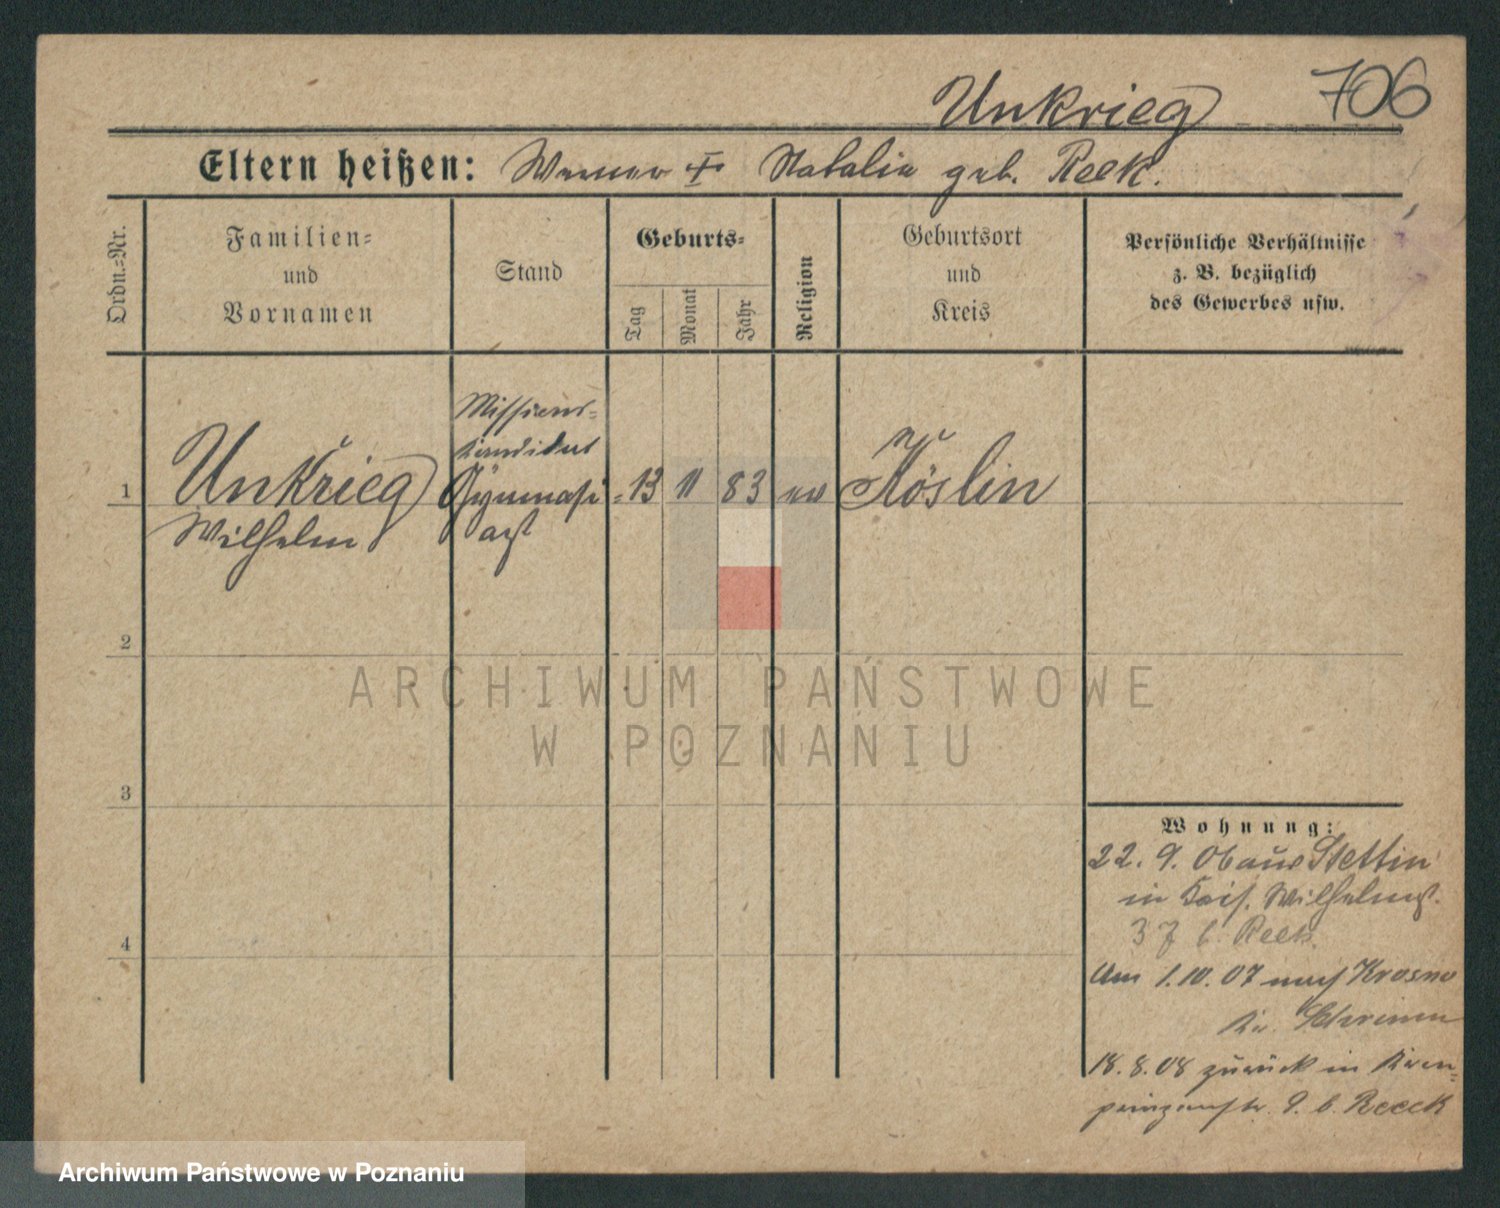 Unkrieg 706
Eltern heißen: Werner † Natalie geb. Reek.
Ordn.=Nr.
Familien=
und
Vornamen
Stand
Geburts=
Tag
Monat
Jahr
Religion
Geburtsort
und
Kreis
Persönliche Verhältnisse
z. B. bezüglich
des Gewerbes usw.
Missions=
kandidat
1 Unkrieg Gymnasi= 13 11 83 ev Köslin
Wilhelm ast
2
3
4
ARCHIWUM PAŃSTWOWE
W POZNANIU
Wohnung:
22. 9. 06 aus Stettin
in Kais. Wilhelmst.
37 b. Reek.
Am 1.10.07 nach Krosno
Kr. Schrimm
18.8.08 zurück in Kron=
prinzenstr. 9. b. Reeck
Archiwum Państwowe w Poznaniu